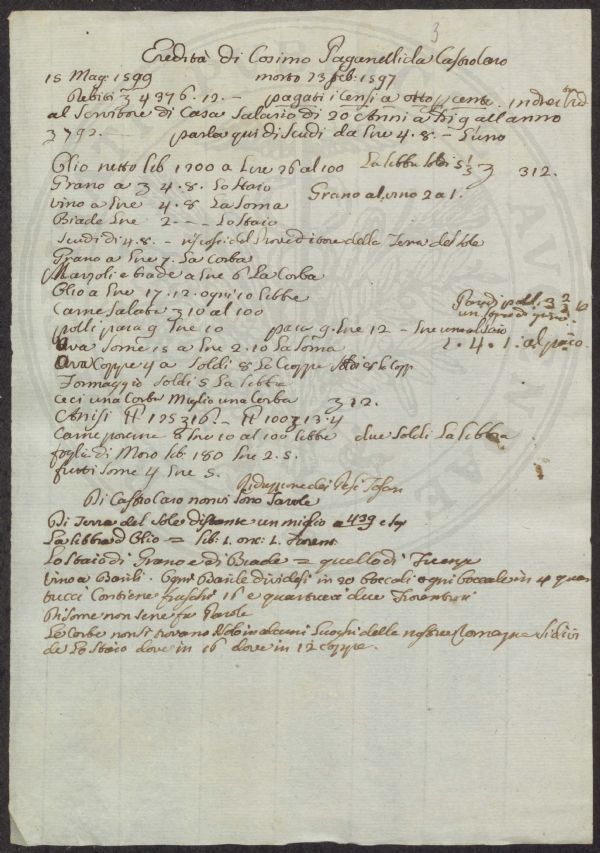 3
Eredità di Cosimo Paganelli da Castrocaro
15 Mag. 1599 morto 23 feb. 1597
Debiti 3 4376. 12. – pagati i Censi a otto p cento
al Servitore di Casa Salario di 20 Anni a all anno
3 792. – parla qui di Scudi da Lire 4. 8. – L'uno
Olio netto lib 1200 a Lire 26 al 100 La libbra Soldi 5 1/3 3 312.
Grano a 3 4. 8. Lo Staio Grano al vino 2 a 1.
vino a Lire 4. 8 La Soma
Biade Lire 2 – – – Lo Staio
Scudi di 4. 8. – riscossi del Proveditore della Terra del Sole
Grano a Lire 7. La Corba
Marzoli e biade a Lire 6 La Corba
Olio a Lire 17. 12. ogni 10 libbre
Carne Salata 3 10 al 100
polli para 9 Lire 10 para 9. Lire 12 – Lire uno al paio
1. 4. 1. al paio
Uva Some 15 a Lire 2. 10 La Soma
Uva Coppe 4 a Soldi 8 La Coppa
Formaggio Soldi 5 La libbra
ceci una Corba Miglio una Corba 3 12.
Anisi 125 3 16. – 100 3 13. 4
Carne porcina a Lire 10 al 100 libbe due Soldi La libbra
foglia di Moro lib. 180 Lire 2. 5.
frutti Some 4 Lire 5.
Riduzzione dei Pesi Toscan
Di Castrocaro non vi sono Tavole
Di Terra del Sole distante un miglio a 439 e
La libbra d Olio = lib. 1. onc. 1. Fiorent
Lo Staio di Grano e di Biade = quello di Firenze
vino a Barili. Ogni Barile dividesi in 20 boccali ogni boccale in 4 quar
tucci Contiene fiaschi 16 e quartucci due Fiorentini
Di Some non se ne fa Parole
Le Corbe non si trovano Solo in alcuni Luoghi della nostra Romagna Si divi
de Lo Staio dove in 16 dove in 12 coppe.